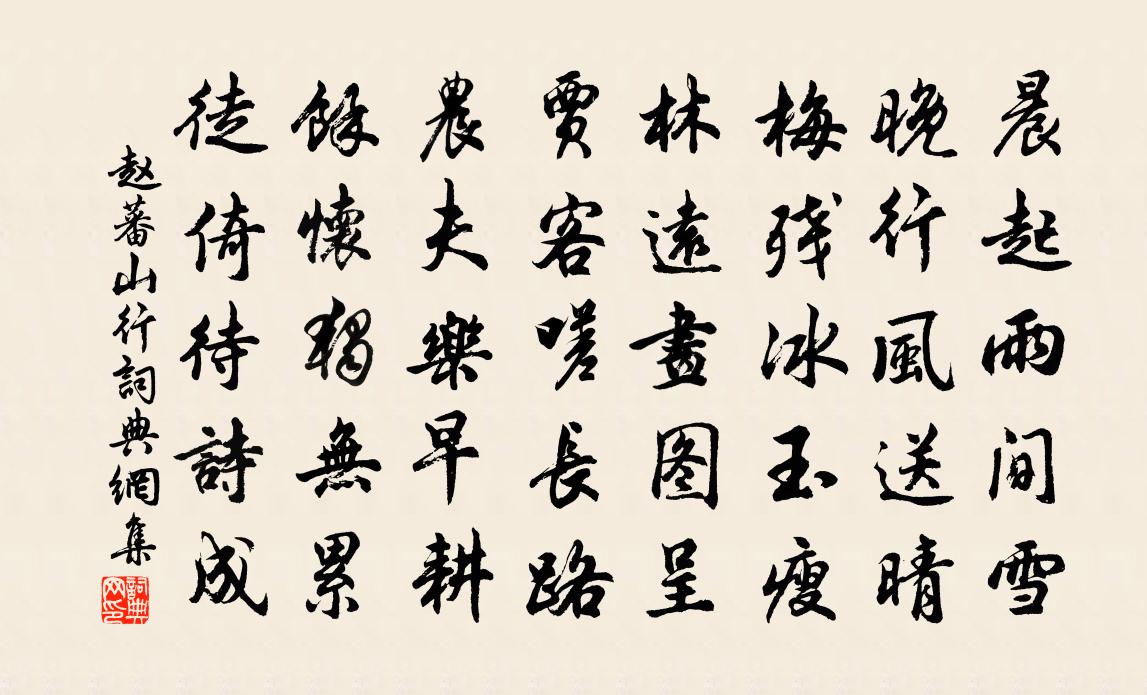 晨起雨间雪
晚行風送晴
梅残冰玉瘦
林遠畫图呈
賈客嗟長路
農夫樂早耕
餘懷獨無累
徒倚待詩成
赵蕃山行詞典網集
詞典网印